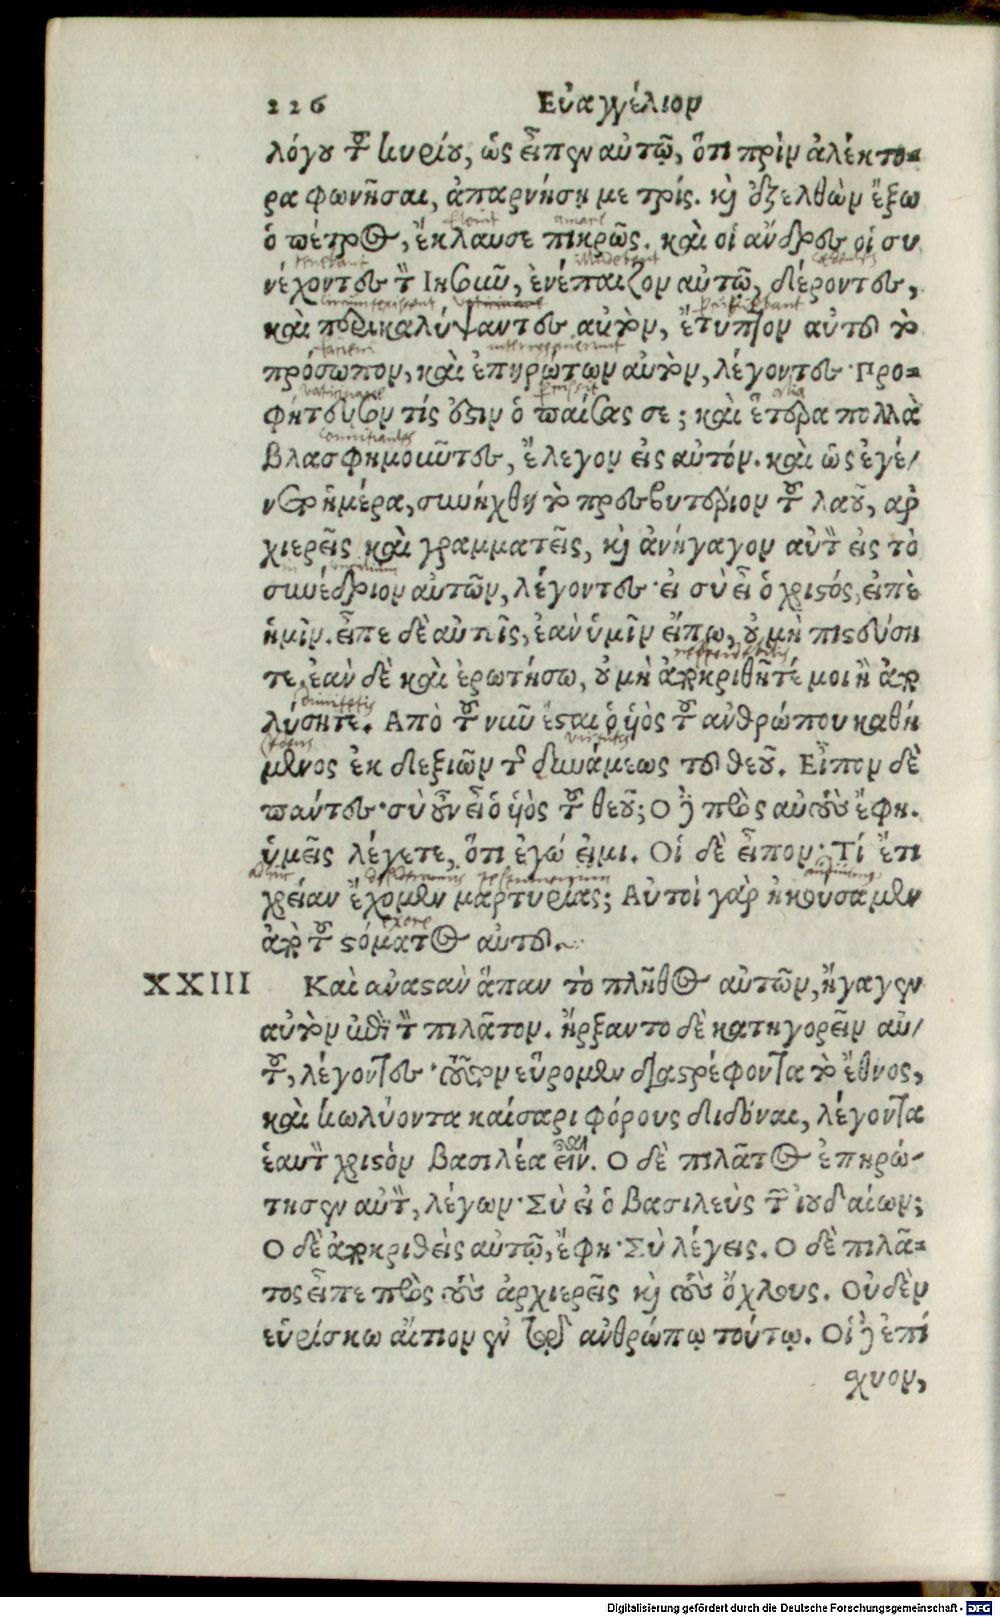 226 Εὐαγγέλιον
λόγου τοῦ κυρίου, ὡς εἶπεν αὐτῷ, ὅτι πρὶν ἀλέκτο=
ρα φωνῆσαι, ἀπαρνήσῃ με τρίς. καὶ ἐξελθὼν ἔξω
ὁ πέτρος, ἔκλαυσε πικρῶς. καὶ οἱ ἄνδρες οἱ συ
νέχοντες τὸν Ἰησοῦν, ἐνέπαιζον αὐτῶ, δέροντες,
καὶ περικαλύψαντες αὐτὸν, ἔτυπτον αὐτοῦ τὸ
πρόσωπον, καὶ ἐπηρώτων αὐτὸν, λέγοντες· Προ=
φήτευσον τίς ἐστιν ὁ παίσας σε; καὶ ἕτερα πολλὰ
βλασφημοῦντες, ἔλεγον εἰς αὐτόν. καὶ ὡς ἐγέ/
νετο ἡμέρα, συνήχθη τὸ πρεσβυτέριον τοῦ λαοῦ, ἀρ
χιερεῖς καὶ γραμματεῖς, καὶ ἀνήγαγον αὐτὸν εἰς τὸ
συνέδριον αὐτῶν, λέγοντες· εἰ σὺ εἶ ὁ χριστός, εἰπὲ
ἡμῖν. εἶπε δὲ αὐτοῖς, ἐὰν ὑμῖν εἴπω, οὐ μὴ πιστεύση
τε, ἐὰν δὲ καὶ ἐρωτήσω, οὐ μὴ ἀποκριθῆτέ μοι ἢ ἀπο
λύσητε. Ἀπὸ τοῦ νῦν ἔσται ὁ υἱὸς τοῦ ἀνθρώπου καθή
μενος ἐκ δεξιῶν τῆς δυνάμεως τοῦ θεοῦ. Εἶπον δὲ
πάντες· σὺ οὖν εἶ ὁ υἱὸς τοῦ θεοῦ; Ο δὲ πρὸς αὐτοὺς ἔφη.
ὑμεῖς λέγετε, ὅτι ἐγώ εἰμι. Οἱ δὲ εἶπον· Τί ἔτι
χρείαν ἔχομεν μαρτυρίας; Αὐτοὶ γὰρ ἠκούσαμεν
ἀπὸ τοῦ στόματος αὐτοῦ.
XXIII Καὶ ἀναστὰν ἅπαν τὸ πλῆθος αὐτῶν, ἤγαγεν
αὐτὸν ἐπὶ τὸν πιλᾶτον. ἤρξαντο δὲ κατηγορεῖν αὐ/
τοῦ, λέγοντες· τοῦτον εὕρομεν διαστρέφοντα τὸ ἔθνος,
καὶ κωλύοντα καίσαρι φόρους διδόναι, λέγοντα
ἑαυτὸν χριστὸν βασιλέα εἶναι. Ο δὲ πιλᾶτος ἐπηρώ-
τησεν αὐτὸν, λέγων· Σὺ εἶ ὁ βασιλεὺς τῶν ἰουδαίων;
Ο δὲ ἀποκριθεὶς αὐτῷ, ἔφη· Σὺ λέγεις. Ο δὲ πιλᾶ=
τος εἶπε πρὸς τοὺς ἀρχιερεῖς καὶ τοὺς ὄχλους. Οὐδὲν
εὑρίσκω αἴτιον ἐν τῷ ἀνθρώπῳ τούτῳ. Οἱ δὲ ἐπί
χυον,
Digitalisierung gefördert durch die Deutsche Forschungsgemeinschaft - DFG